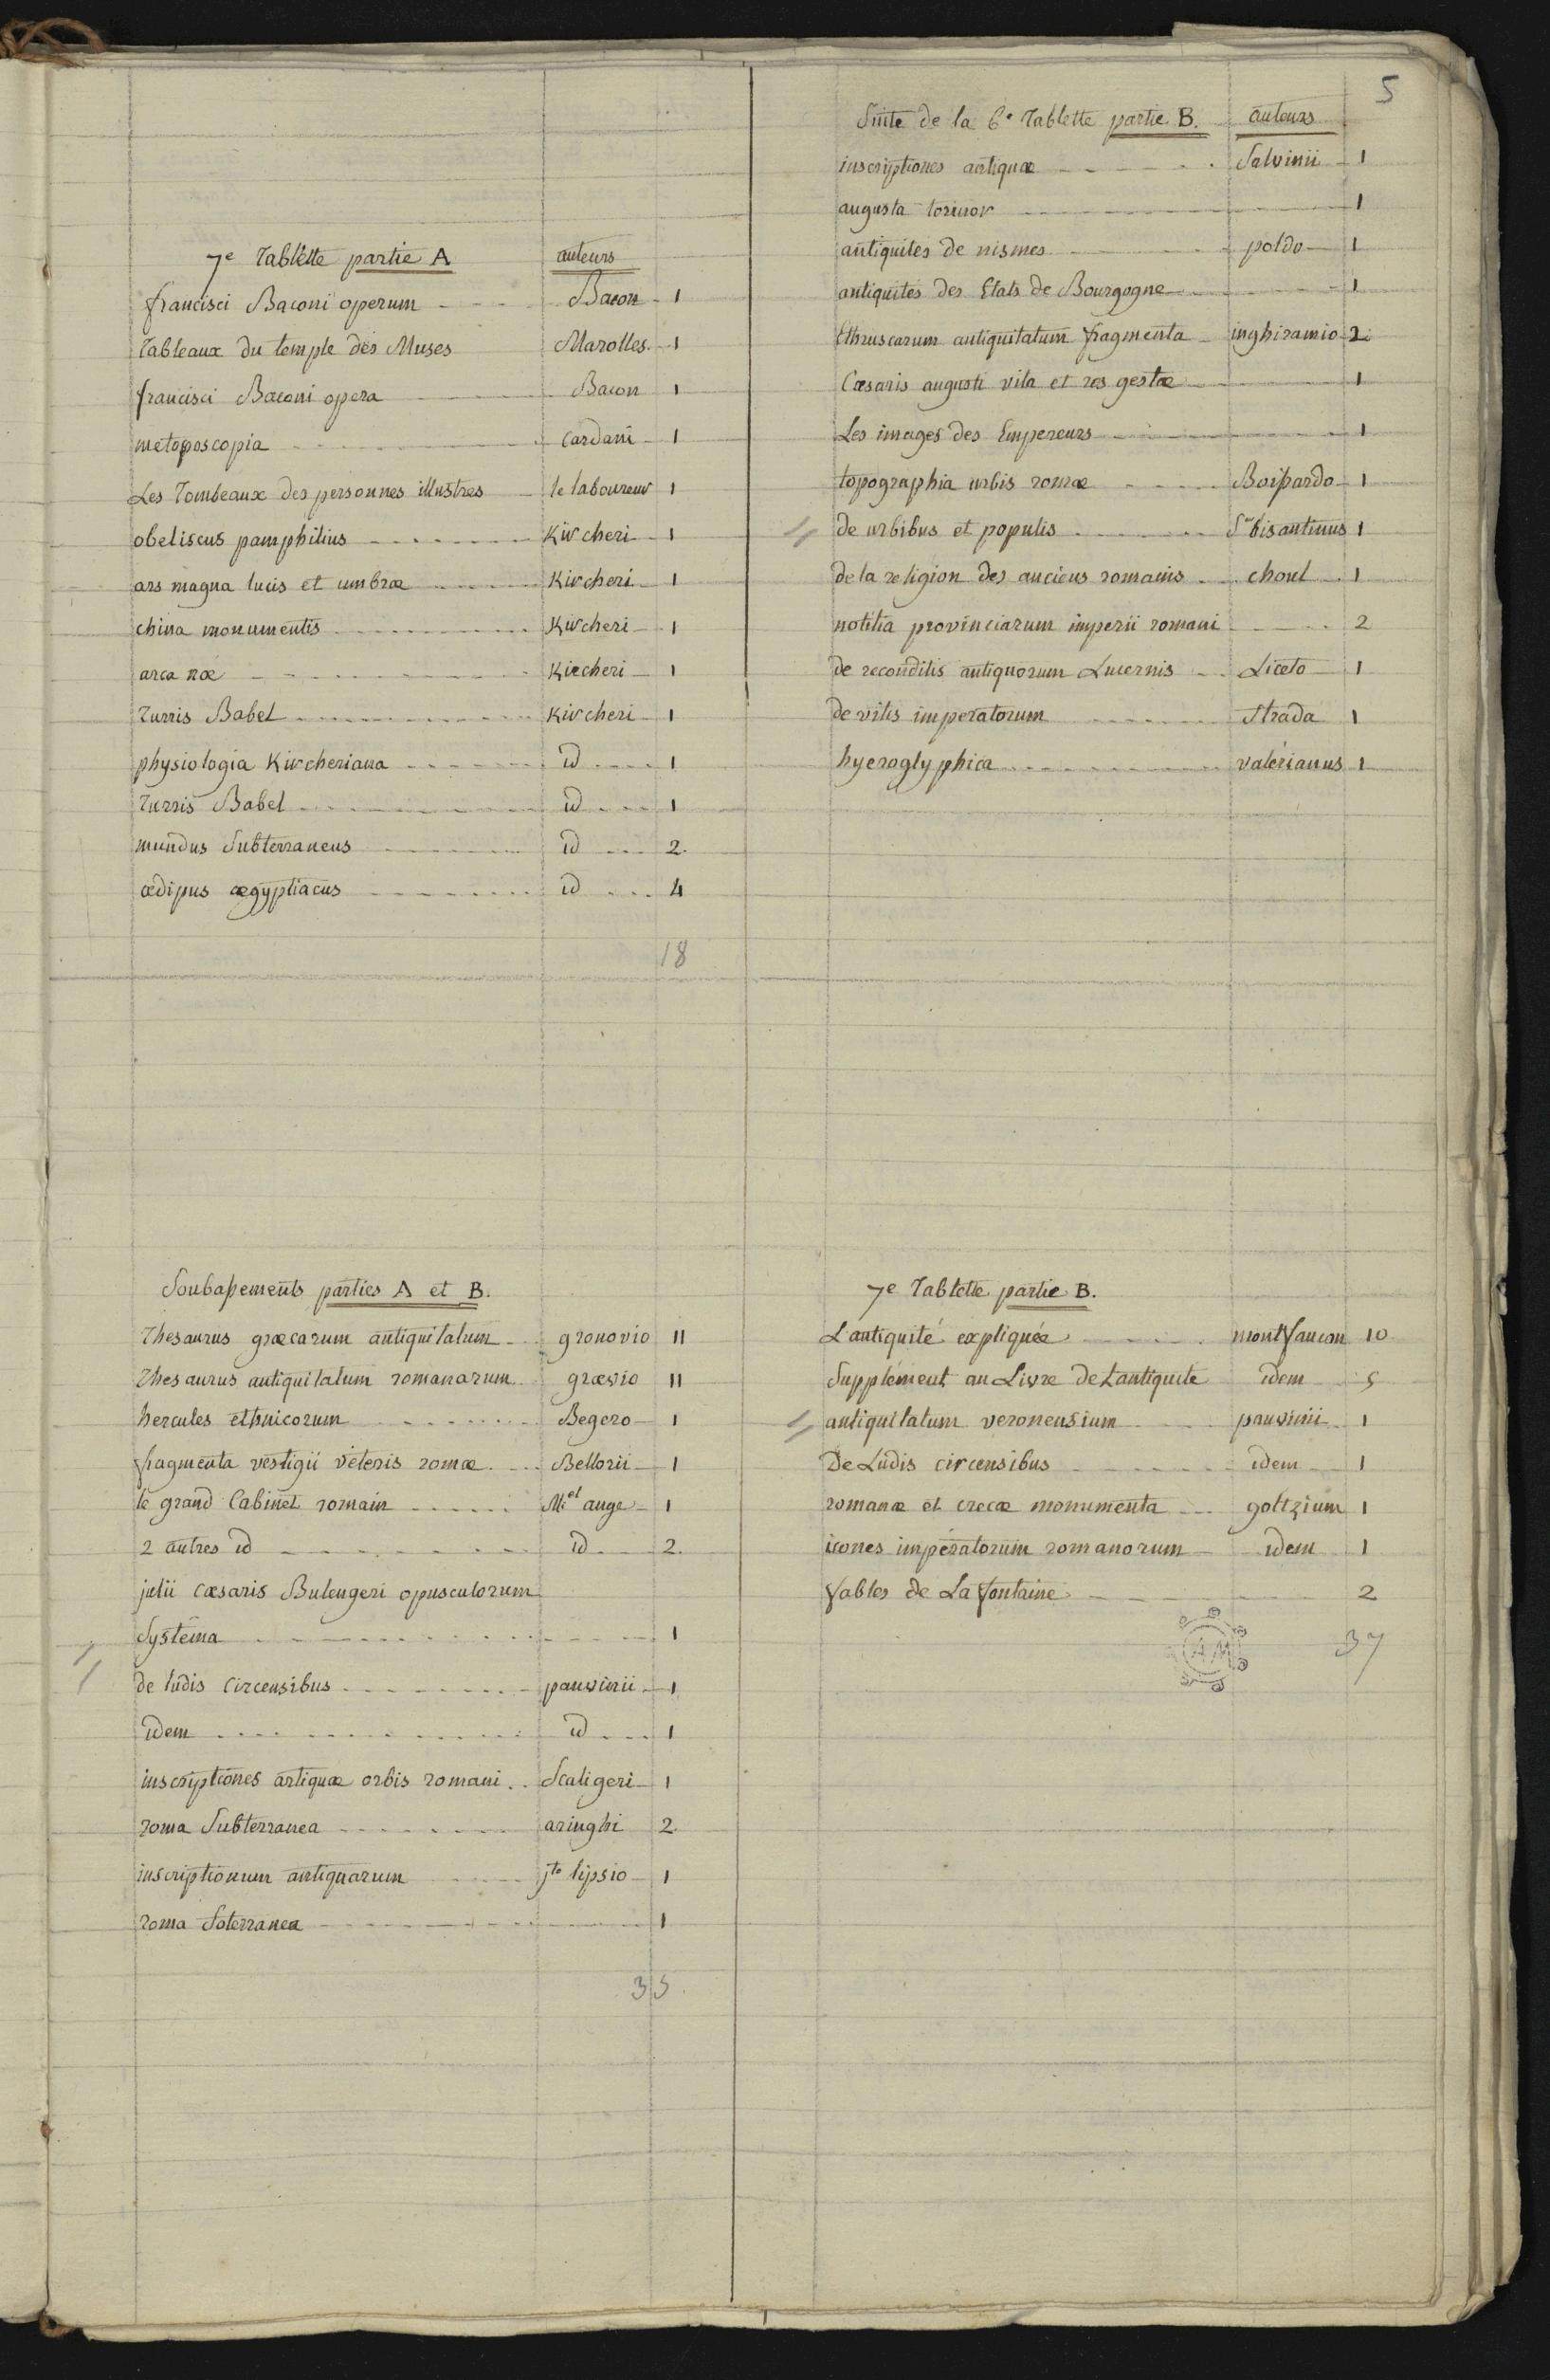 5
7e Tablette partie A auteurs
francisci Baconi operum Bacon 1
Tableaux du temple des Muses Marolles 1
francisci Baconi opera Bacon 1
metoposcopia Cardani 1
Les Tombeaux des personnes illustres le laboureur 1
obeliscus pamphilius Kircheri 1
ars magna lucis et umbræ Kircheri 1
china monumentis Kircheri 1
arca noe Kircheri 1
Turris Babel Kircheri 1
physiologia Kircheriana id 1
Turris Babel id 1
mundus Subterraneus id 2.
œdipus ægyptiacus id 4
18
Soubassements parties A et B.
Thesaurus græcarum antiquitatum gronovio 11
Thesaurus antiquitatum romanarum grævio 11
hercules ethnicorum Begero 1
fragmenta vestigii veteris romæ Bellorii 1
le grand Cabinet romain M.el ange 1
2 autres id id 2.
julii cæsaris Bulengeri opusculorum
Systema 1
de ludis Circensibus panvinii 1
idem id 1
inscriptiones antiquæ orbis romani Scaligeri 1
roma Subterranea aringhi 2.
inscriptionum antiquarum jto lipsio 1
roma Soterranea 1
35
Suite de la 6e Tablette partie B. auteurs
inscriptiones antiquæ Salvinii 1
augusta torinor 1
antiquites de nismes poldo 1
antiquites des Etats de Bourgogne 1
Ethruscarum antiquitatum fragmenta inghiramio 2.
Cæsaris augusti vita et res gestæ 1
Les images des Empereurs 1
topographia urbis romæ Boissardo 1
de urbibus et populis bisantinus 1
de la religion des anciens romains choul 1
notitia provinciarum imperii romani 2
de reconditis antiquorum Lucernis Liceto 1
de vitis imperatorum Strada 1
hyeroglyphica valérianus 1
7e Tablette partie B.
L'antiquité expliquée montfaucon 10.
Supplément au Livre de L'antiquite idem 5
antiquitatum veronensium panvinii 1
De Ludis circensibus idem 1
romanæ et crecæ monumenta goltzium 1
icones impératorum romanorum idem 1
fables de La fontaine 2
AM
37